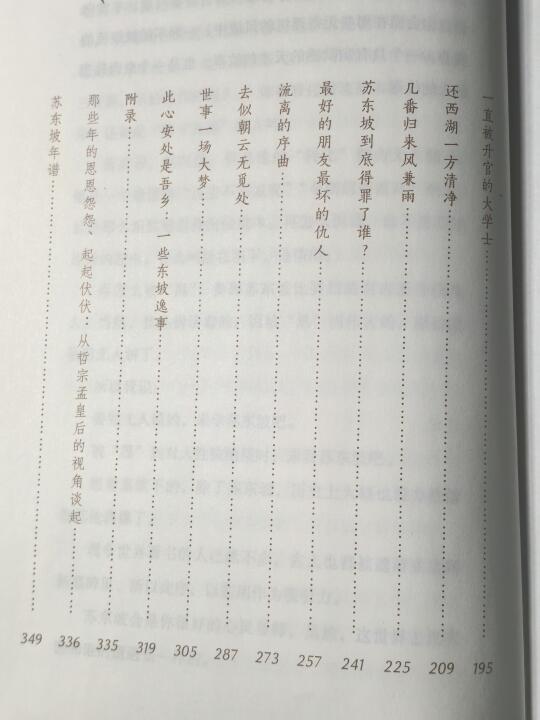 一直被升官的大学士……195
还西湖一方清净……209
几番归来风兼雨……225
苏东坡到底得罪了谁？……241
最好的朋友最坏的仇人……257
流离的序曲……273
去似朝云无觅处……287
世事一场大梦……305
此心安处是吾乡 一些东坡逸事……319
附录……335
那些年的恩恩怨怨、起起伏伏 从哲宗孟皇后的视角谈起……336
苏东坡年谱……349